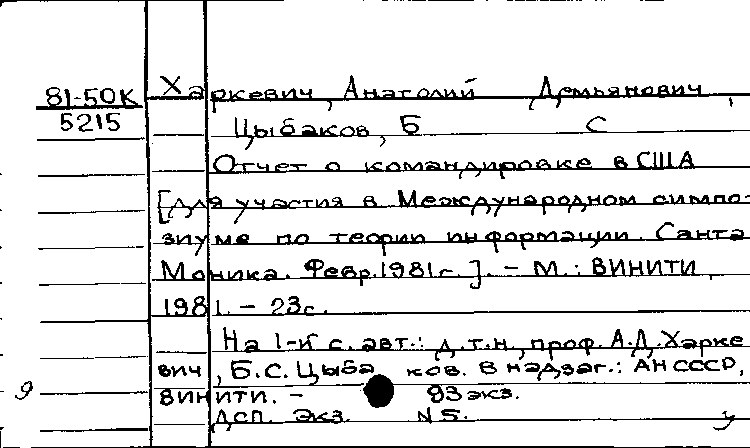 81-50К
5215
Харкевич, Анатолий Демьянович,
Цыбаков, Б С
Отчет о командировке в США
[для участия в Международном симпо-
зиуме по теории информации. Санта
Моника. Февр. 1981 г.]. - М.: ВИНИТИ,
1981. - 23с.
На 1-й с. авт.: д.т.н., проф. А.Д. Харке
вич, Б.С. Цыба ков. В надзаг.: АН СССР,
ВИНИТИ. - 93 экз.
ДСП. Экз. N 5.
9
У